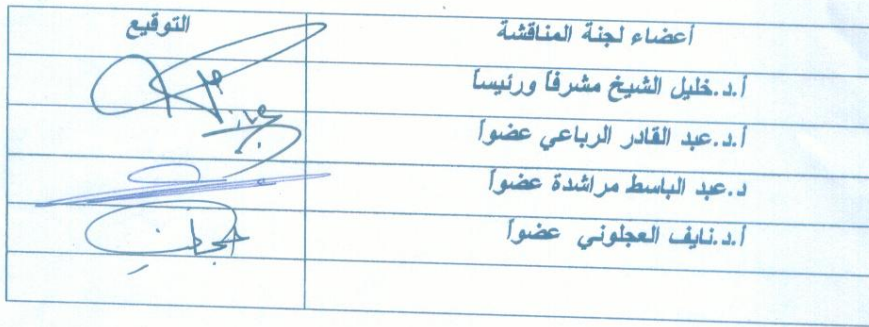 أعضاء لجنة المناقشة التوقيع
أ.د.خليل الشيخ مشرفاً ورئيساً
أ.د.عبد القادر الرباعي عضواً
د.عبد الباسط مراشدة عضواً
أ.د.نايف العجلوني عضواً